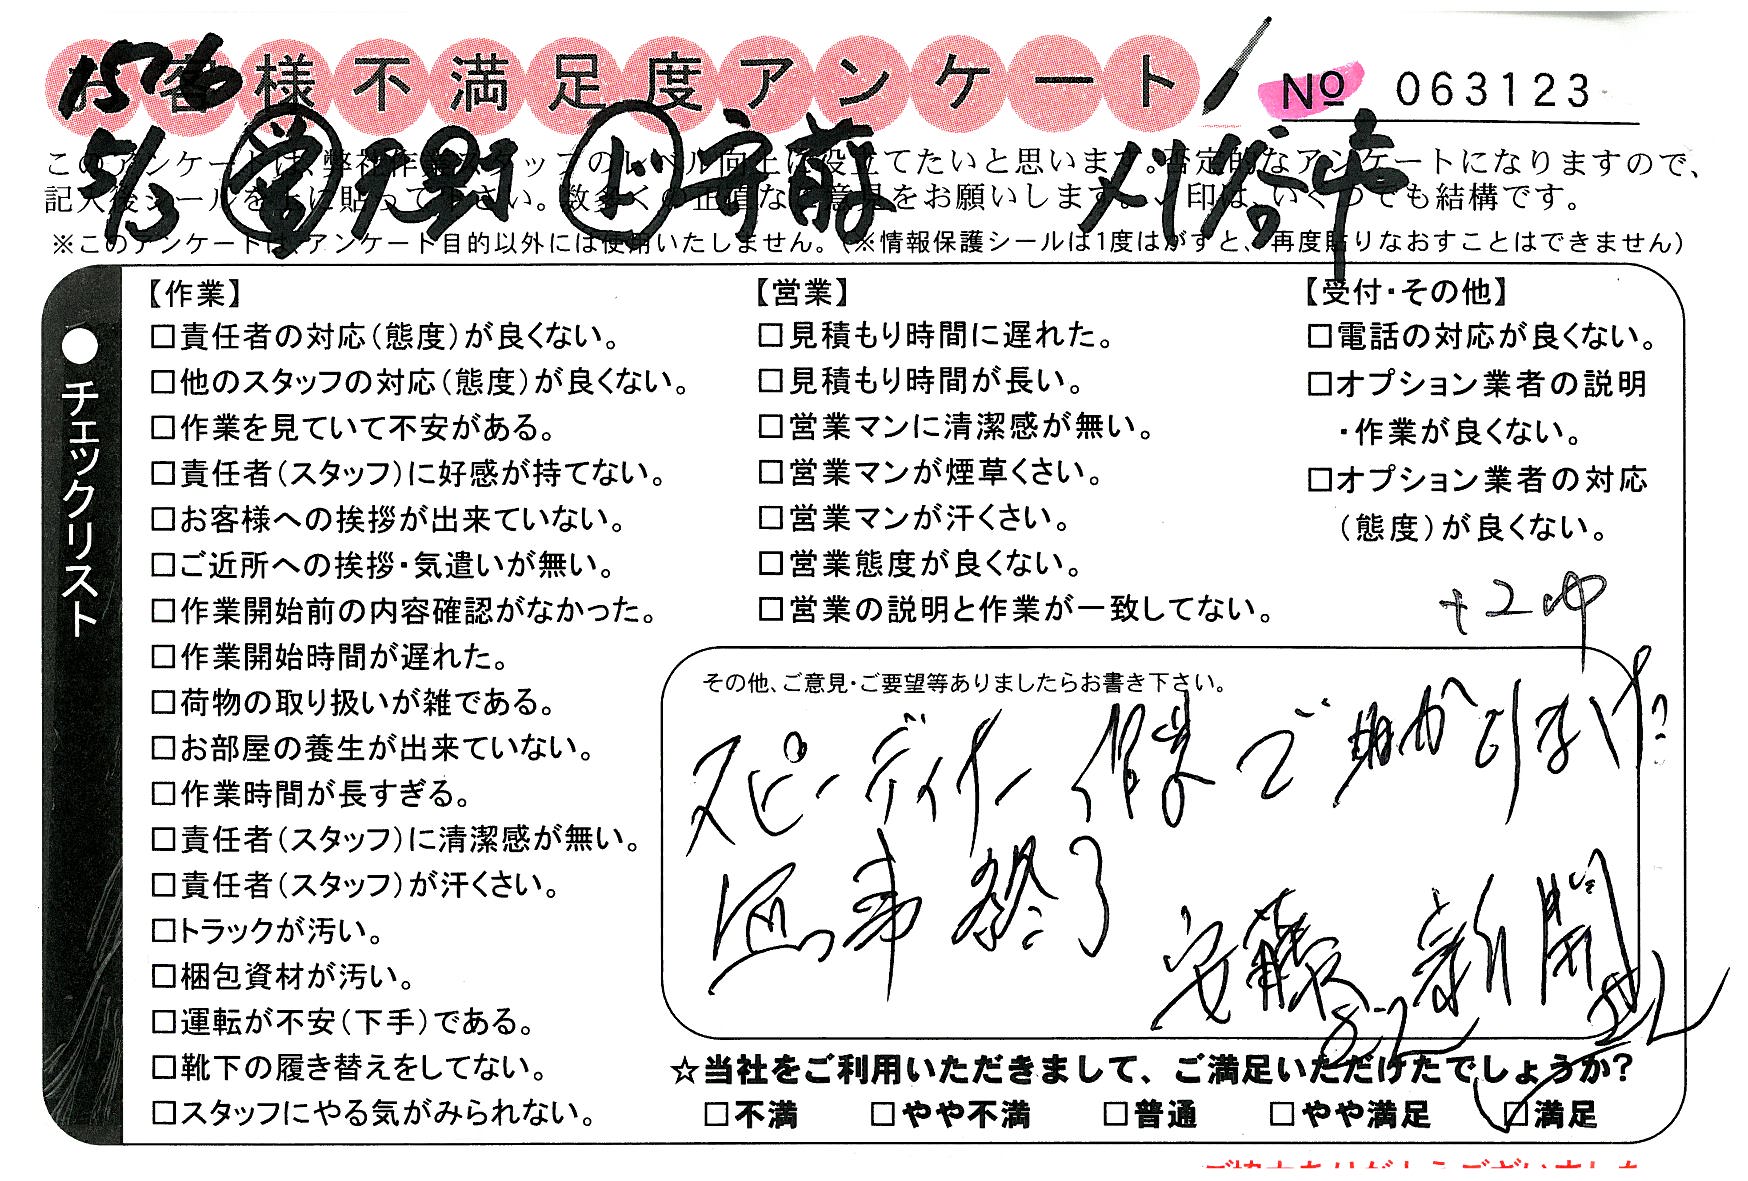 お客様不満足度アンケート
1576
No 063123
5/13 営 天野 作 守前
このアンケートは、弊社作業スタッフのレベル向上に役立てたいと思います。否定的なアンケートになりますので、
記入後シールを上に貼って下さい。数多くの正直なご意見をお願いします。✓印は、いくつでも結構です。
※このアンケートは、アンケート目的以外には使用いたしません。（※情報保護シールは1度はがすと、再度貼りなおすことはできません）
●チェックリスト
【作業】
□責任者の対応（態度）が良くない。
□他のスタッフの対応（態度）が良くない。
□作業を見ていて不安がある。
□責任者（スタッフ）に好感が持てない。
□お客様への挨拶が出来ていない。
□ご近所への挨拶・気遣いが無い。
□作業開始前の内容確認がなかった。
□作業開始時間が遅れた。
□荷物の取り扱いが雑である。
□お部屋の養生が出来ていない。
□作業時間が長すぎる。
□責任者（スタッフ）に清潔感が無い。
□責任者（スタッフ）が汗くさい。
□トラックが汚い。
□梱包資材が汚い。
□運転が不安（下手）である。
□靴下の履き替えをしてない。
□スタッフにやる気がみられない。
【営業】
□見積もり時間に遅れた。
□見積もり時間が長い。
□営業マンに清潔感が無い。
□営業マンが煙草くさい。
□営業マンが汗くさい。
□営業態度が良くない。
□営業の説明と作業が一致してない。
【受付・その他】
□電話の対応が良くない。
□オプション業者の説明
・作業が良くない。
□オプション業者の対応
（態度）が良くない。
その他、ご意見・ご要望等ありましたらお書き下さい。
スピーディー 作業で助かりました
無事終了
安藤 新開
☆当社をご利用いただきまして、ご満足いただけたでしょうか？
□不満 □やや不満 □普通 □やや満足 ☑満足
ご協力ありがとうございました